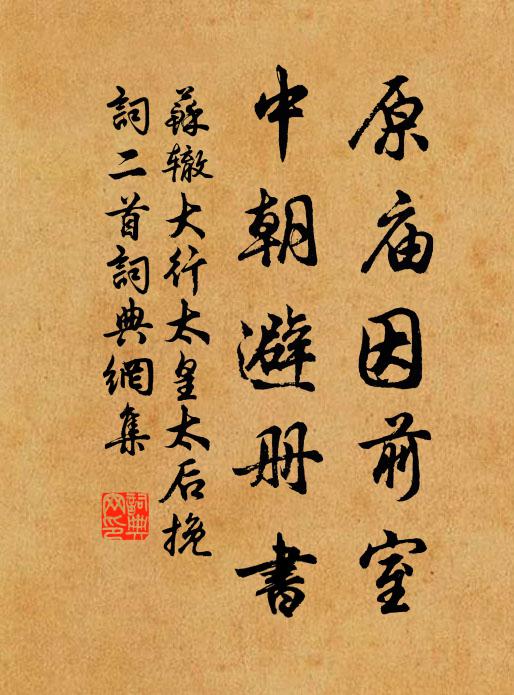 原庙因前室
中朝避册書
蘇辙大行太皇太后挽
詞二首詞典網集
詞典網印